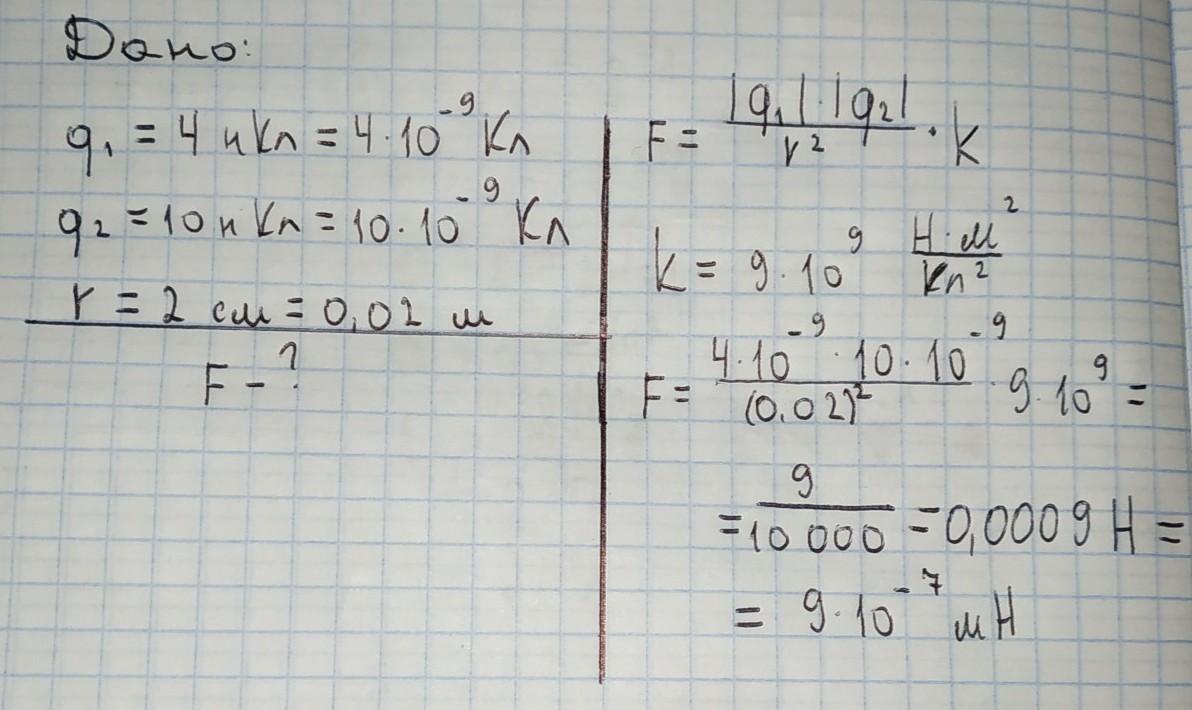 Дано:
q₁ = 4 нКл = 4·10⁻⁹ Кл
q₂ = 10 нКл = 10·10⁻⁹ Кл
r = 2 см = 0,02 м
F - ?
F = |q₁|·|q₂| / r² · k
k = 9·10⁹ Н·м² / Кл²
F = 4·10⁻⁹·10·10⁻⁹ / (0.02)² · 9·10⁹ =
= 9 / 10 000 = 0,0009 Н =
= 9·10⁻⁷ мН